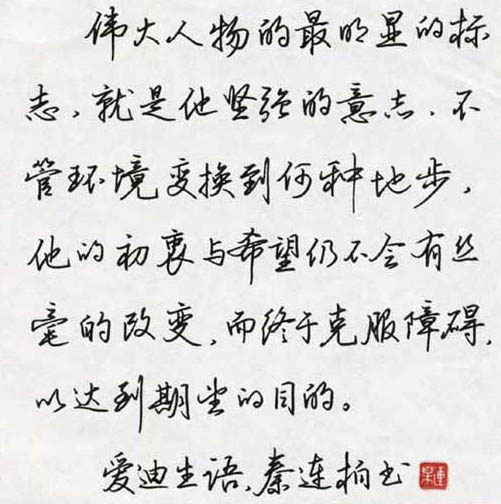 伟大人物的最明显的标
志,就是他坚强的意志.不
管环境变换到何种地步,
他的初衷与希望仍不会有丝
毫的改变,而终于克服障碍,
以达到期望的目的。
爱迪生语.秦连柏书